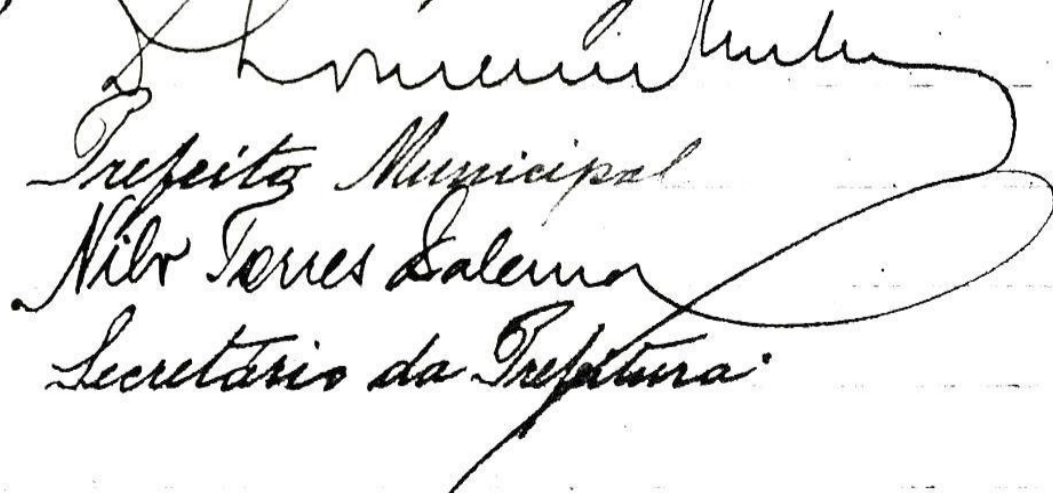 Prefeito Municipal
Nilo Torres Salerno
Secretário da Prefeitura